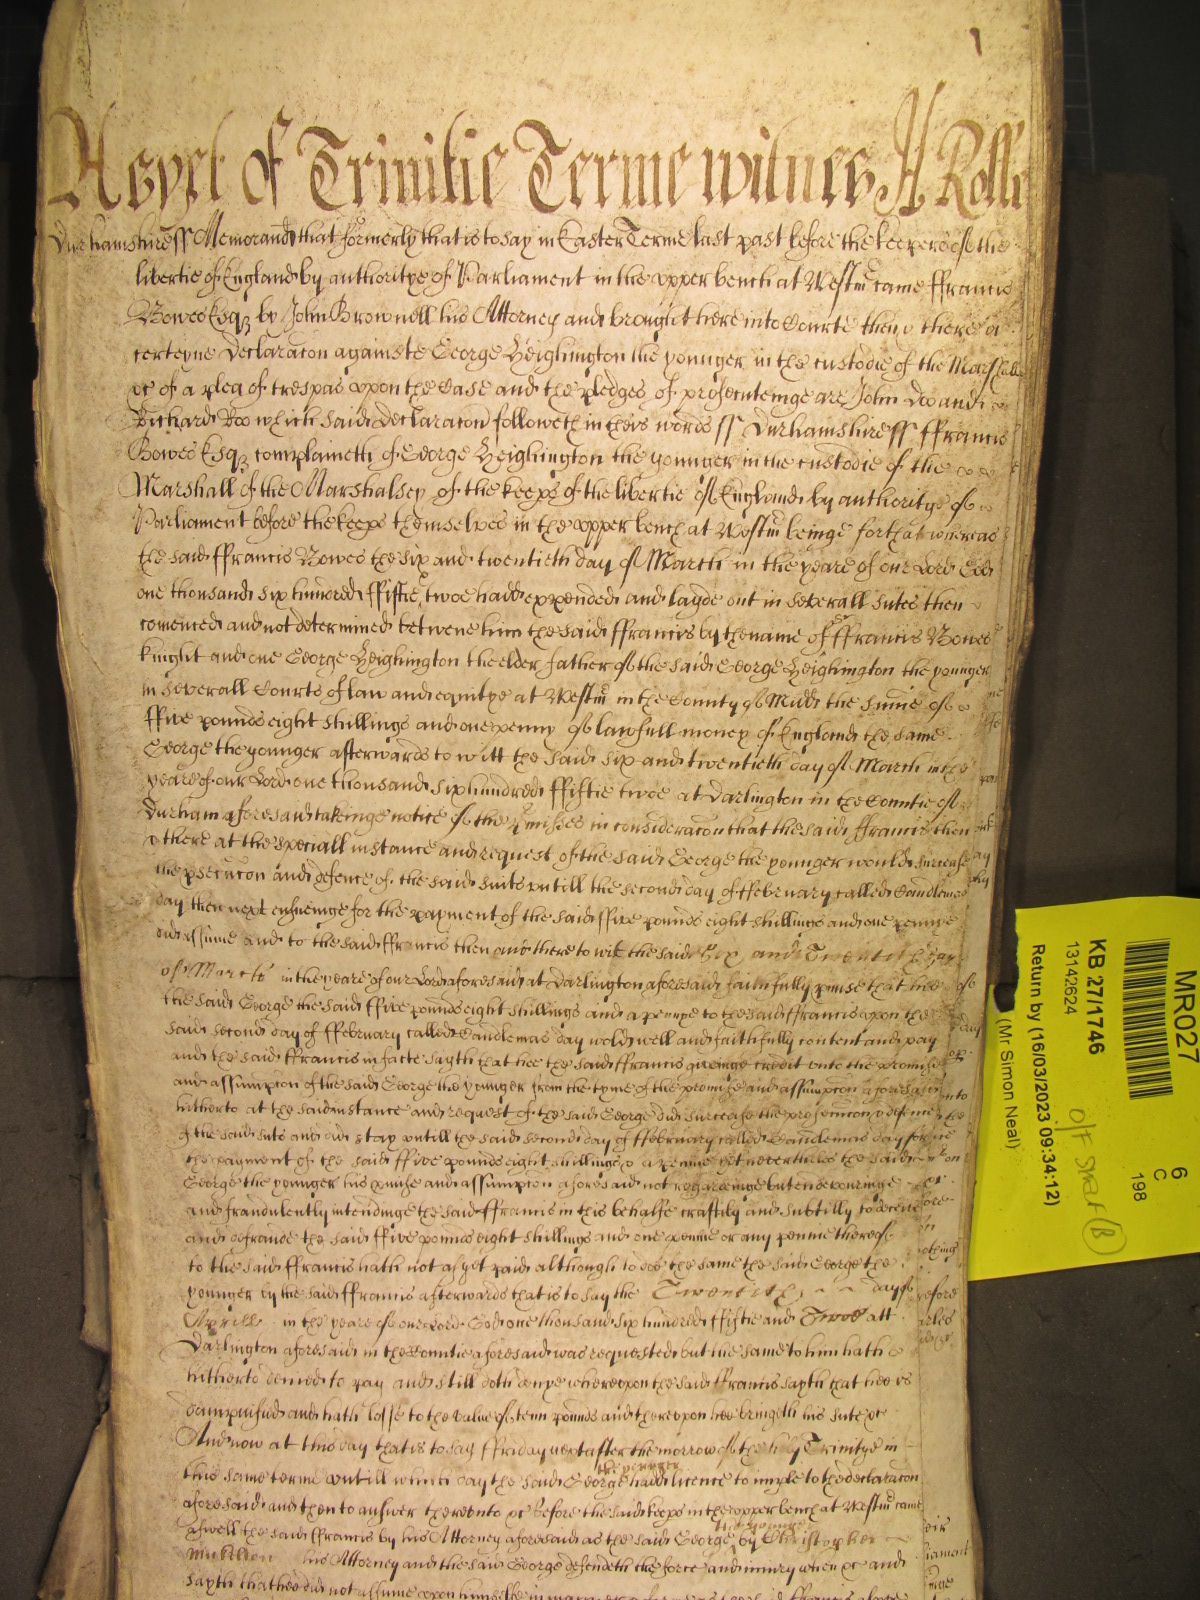 1
Asyet of Trinitie Terme witnes H Rolle
Durhamshire ss Memorand that formerly that is to say in Easter Terme last past before the keepers of the
libertie of England by authoritye of Parliament in the upper bench at Westm came ffrancis
Bowes Esqz by John Brownell his Attorney and brought here into Courte then & there a
certeyne declaracon againste George Heighington the younger in the custodie of the Marshall
&c of a plea of trespas upon the Case and the pledges of prosecuteinge are John Doo and
Richard Roo which said declaracon followeth in theis words ss Durhamshire ss ffrancis
Bowes Esqz complaineth of George Heighington the younger in the custodie of the
Marshall of the Marshalsey of the keeps of the libertie of England by authoritye of
Parliament before the keeps themselves in the upper bench at Westm beinge for that whereas
the said ffrancis Bowes the six and twentieth day of March in the yeare of our Lord God
one thousand six hundred ffiftie twoe hadd expended and layde out in severall sutes then
comenced and not determined betwene him the said ffrancis by the name of ffrancis Bowes
knight and one George Heighington the elder father of the said George Heighington the younger
in severall Courts of law and equitye at Westm in the County of Midd the sume of
ffive pounds eight shillings and one penny of lawfull money of England the same
George the younger afterwards to witt the said six and twentieth day of March in the
yeare of our Lord one thousand six hundred ffiftie twoe at Darlington in the Countie of
Durham aforesaid takeinge notice of the pmisses in consideracon that the said ffrancis then
& there at the speciall instance and request of the said George the younger would surcease
the psecucon and defence of the said suits untill the second day of ffebruary called Candlemas
day then next ensueinge for the payment of the said ffive pounds eight shillings and one pennye
did assume and to the said ffrancis then and there to wit the said Six and Twentieth day
of March in the yeare of our Lord aforesaid at Darlington aforesaid faithfully pmise that hee
the said George the said ffive pounds eight shillings and a pennye to the said ffrancis upon the
said second day of ffebruary called Candlemas day wold well and faithfully content and pay
and the said ffrancis in facte sayth that hee the said ffrancis giveinge credit unto the promise
and assumpcon of the said George the younger from the tyme of the promise and assumpcon aforesaid
hitherto at the said instance and request of the said George did surcease the prosecucon & defence
of the said suts and did stay untill the said second day of ffebruary called Candlemas day for
the payment of the said ffive pounds eight shillings & a pennie yet neverthelesse the said
George the younger his pmise and assumpcon aforesaid not regardeinge but endevouringe
and fraudulently intendinge the said ffrancis in this behalfe craftily and subtilly to deceive
and defraude the said ffive pounds eight shillings and one pennie or any pennie thereof
to the said ffrancis hath not as yet paid although to doe the same the said George the
younger by the said ffrancis afterwards that is to say the Twentieth day of
Aprill in the yeare of our Lord God one thousand six hundred ffiftie and Twoe att
Darlington aforesaid in the Countie aforesaid was requested but the same to him hath
hitherto denied to pay and still doth denye whereupon the said ffrancis sayth that hee is
dampnifyed and hath losse to the value of tenn pounds and thereupon hee bringeth his sute &c
And now at this day that is to say ffriday next after the morrow of the holy Trinitye in
this same terme untill which day the said George the younger hadd licence to imple to the declaracon
aforesaid and then to answer thereunto &c before the said keeps in the upper bench at Westm came
aswell the said ffrancis by his Attorney aforesaid as the said George the younger by Christopher
his Attorney and the said George defendeth the force and iniury when &c and
sayth that hee did not assume upon himselfe in manner
MR027
6
C
198
KB 27/1746
13142624
Return by (16/03/2023 09:34:12)
(Mr Simon Neal)